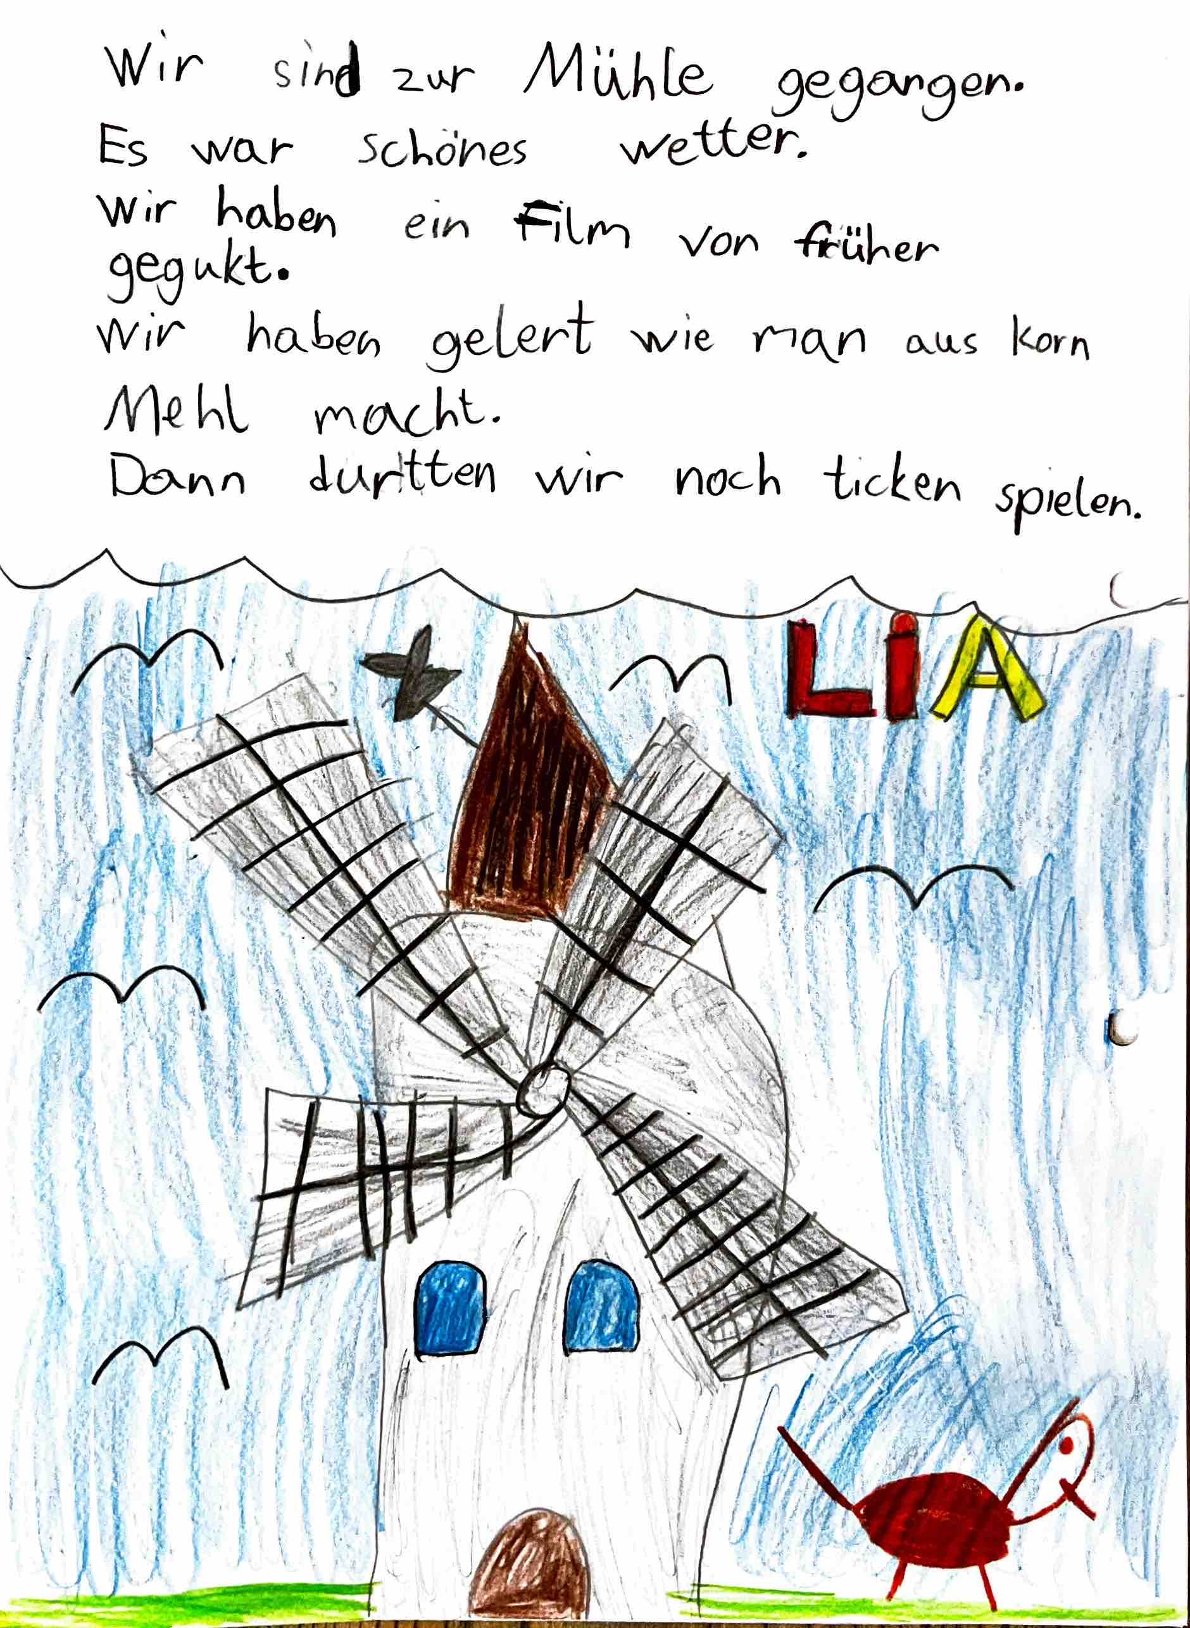 Wir sind zur Mühle gegangen.
Es war schönes wetter.
Wir haben ein Film von früher
gegukt.
Wir haben gelert wie man aus korn
Mehl macht.
Dann durtten wir noch ticken spielen.
LiA